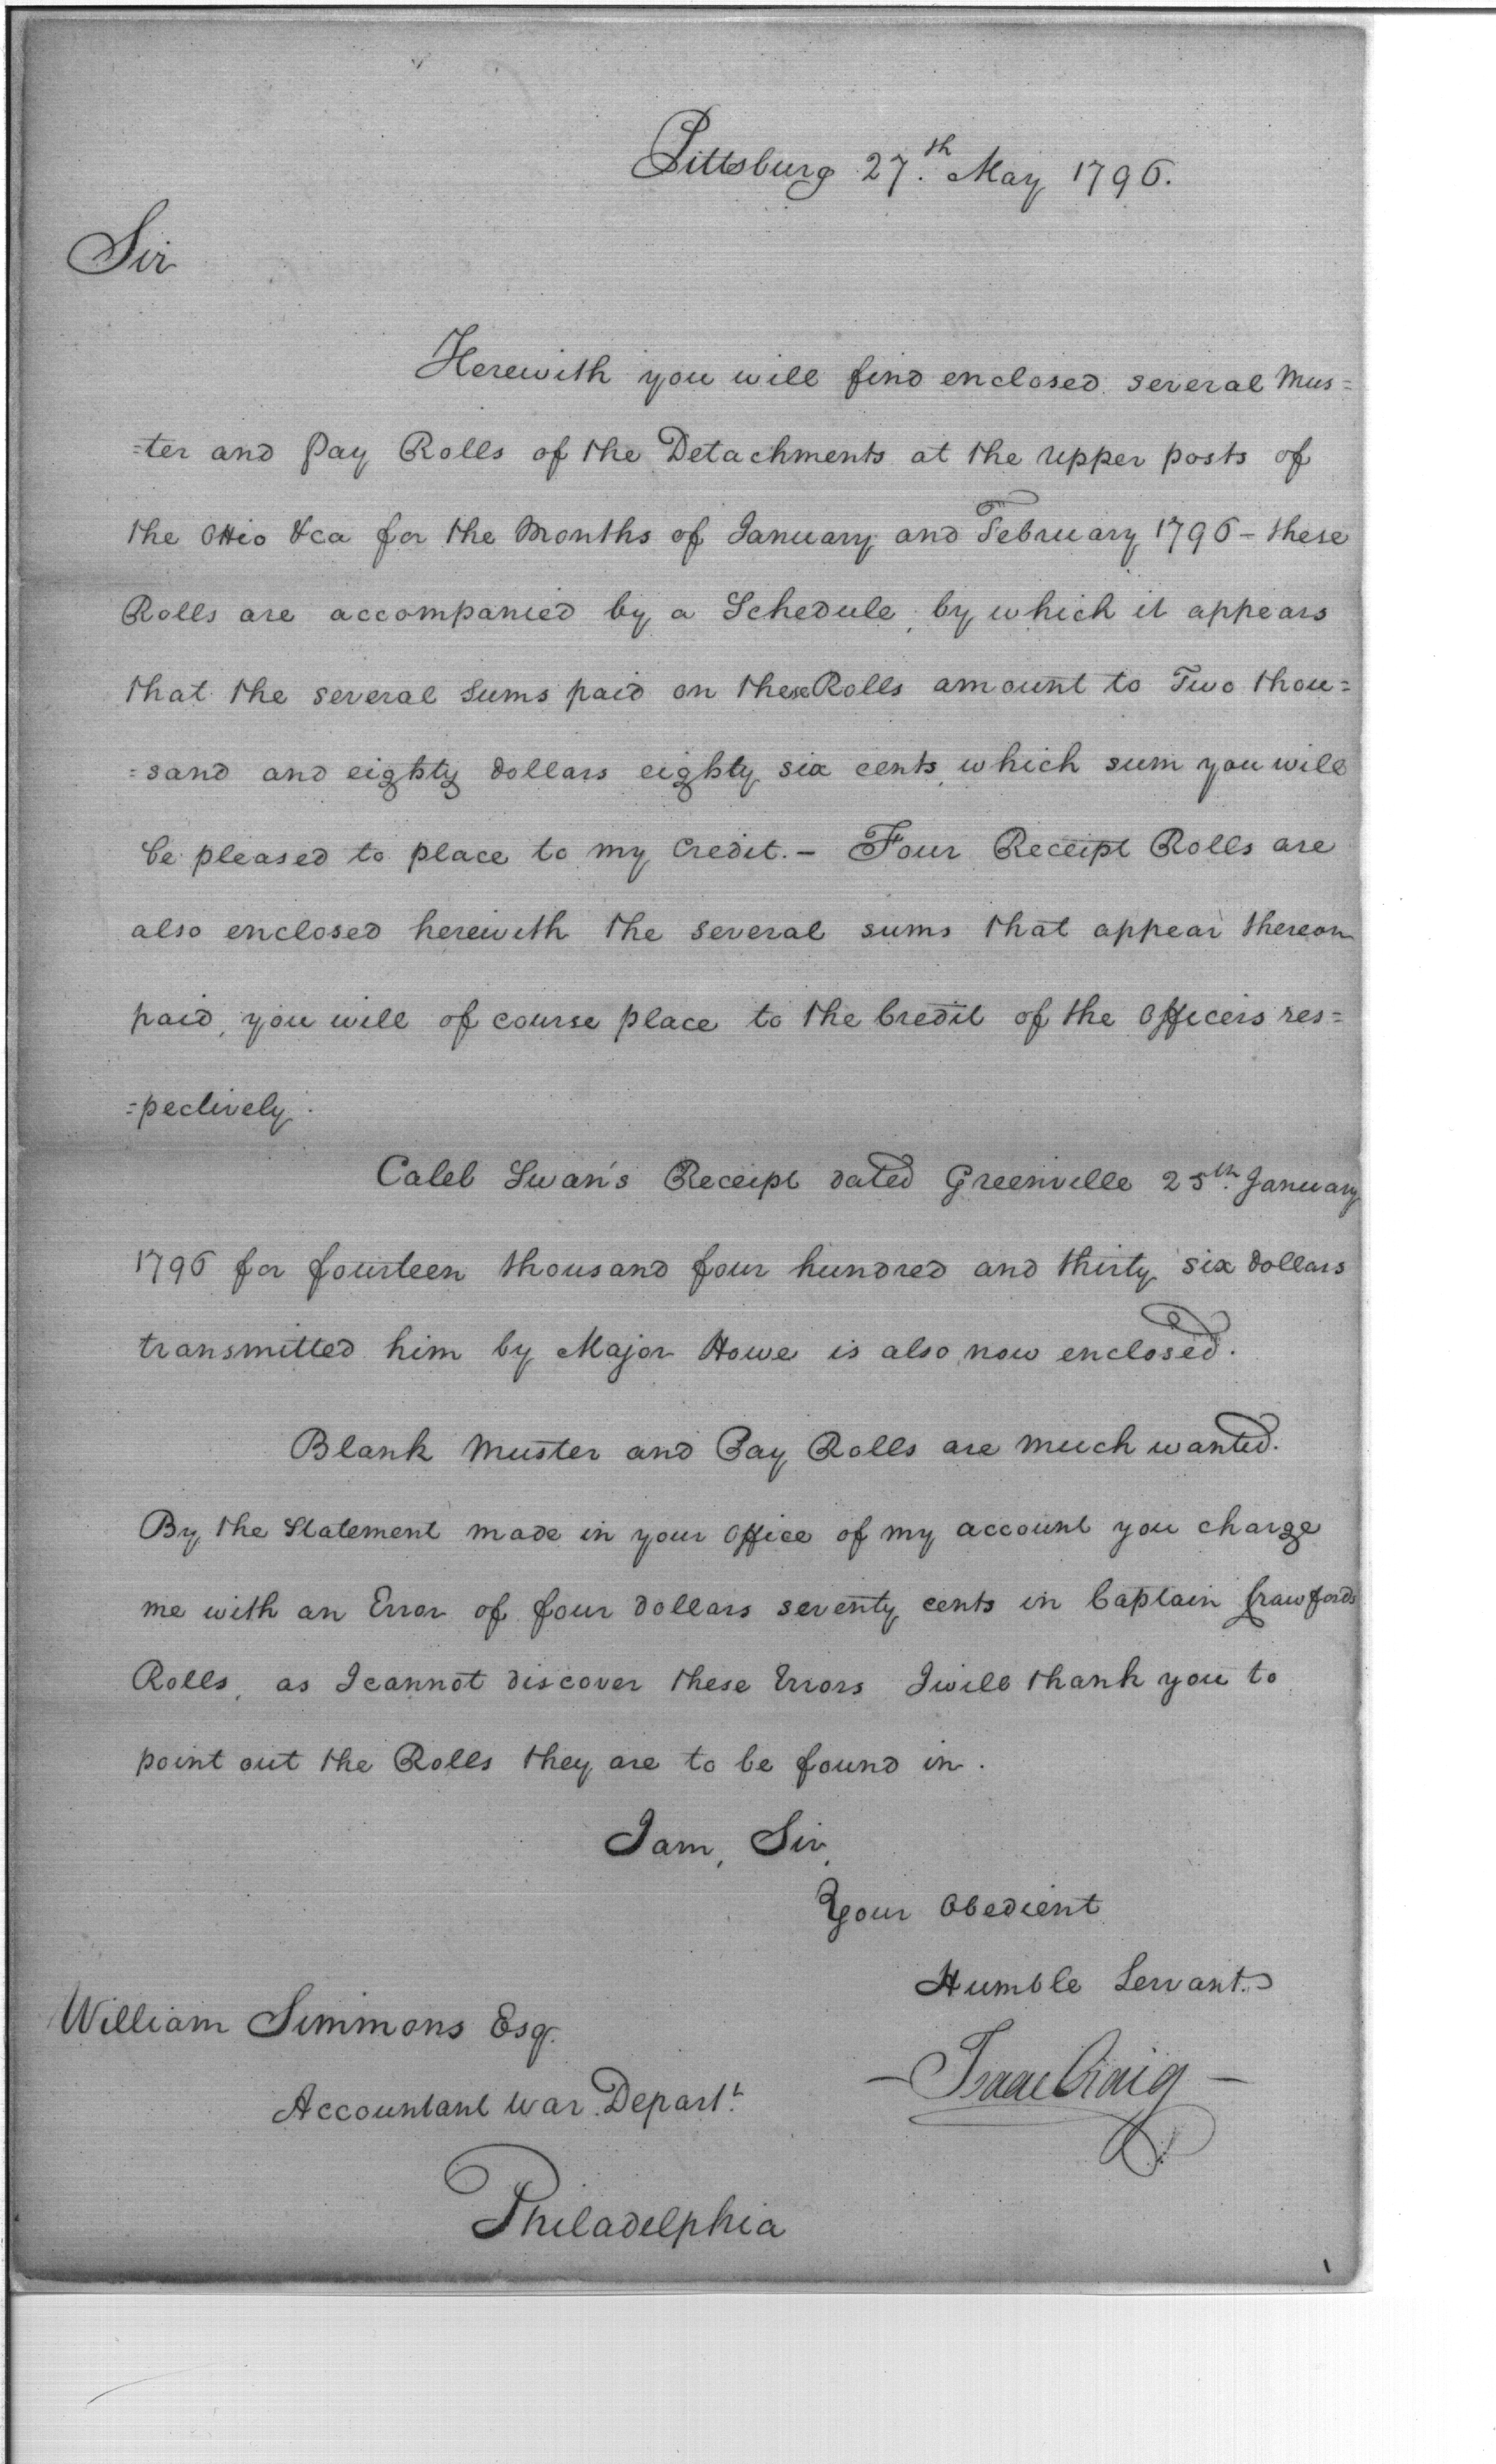 Pittsburg 27.th May 1796.
Sir
Herewith you will find enclosed several Mus=
=ter and Pay Rolls of the Detachments at the upper posts of
the Ohio &ca for the Months of January and February 1796 – these
Rolls are accompanied by a Schedule, by which it appears
that the several Sums paid on these Rolls amount to Two thou=
=sand and eighty dollars eighty six cents, which sum you will
be pleased to place to my Credit. – Four Receipt Rolls are
also enclosed herewith the several sums that appear thereon
paid, you will of course place to the Credit of the Officers res=
=pectively.
Caleb Swan's Receipt dated Greenville 25th. January
1796 for fourteen thousand four hundred and thirty six dollars
transmitted him by Major Howe is also now enclosed.
Blank Muster and Pay Rolls are much wanted.
By the Statement made in your Office of my account you charge
me with an Error of four dollars seventy cents in Captain Crawfords
Rolls, as I cannot discover these Errors I will thank you to
point out the Rolls they are to be found in.
I am, Sir,
Your Obedient
Humble Servant.
William Simmons Esq.
– Isaac Craig –
Accountant War Depart.t
Philadelphia